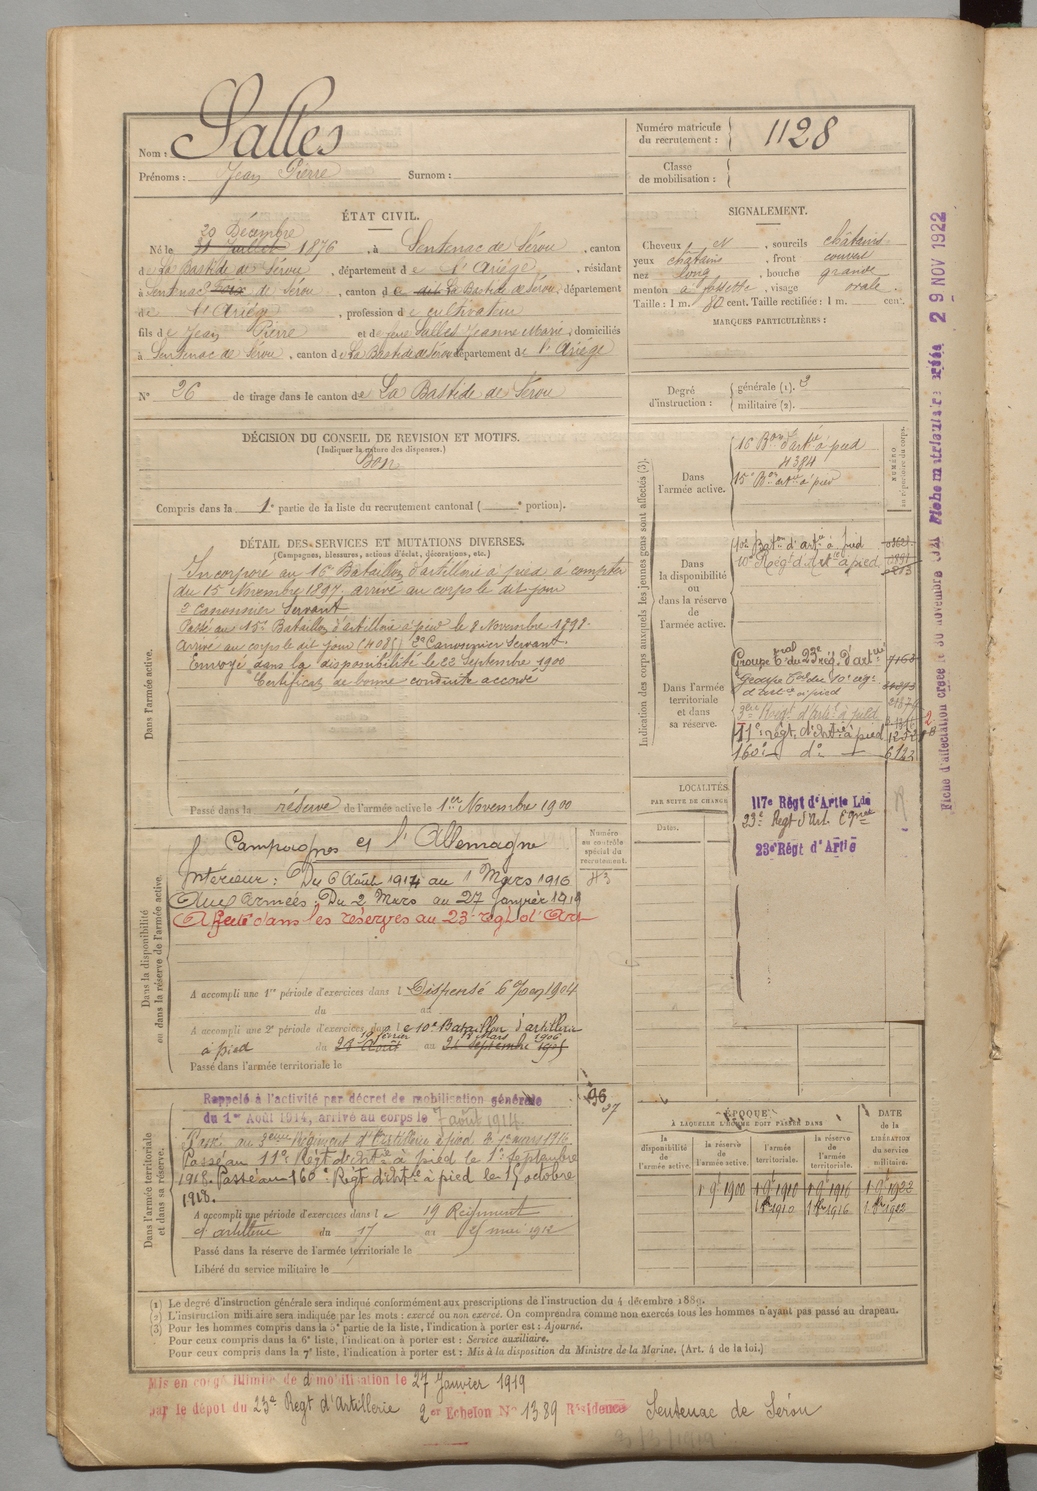 Nom : Salles
Prénoms : Jean Pierre Surnom :
Numéro matricule
du recrutement : 1128
Classe
de mobilisation :
ÉTAT CIVIL.
29 Décembre
Né le 31 Juillet 1876, à Sentenac de Sérou, canton
de La Bastide de Sérou, département de l'Ariège, résidant
à Sentenac de Sérou, canton de dit La Bastide de Sérou, département
de l'Ariège, profession de cultivateur
fils de Jean Pierre et de feue Salles Jeanne Marie, domiciliés
à Sentenac de Sérou, canton de La Bastide de Sérou département de l'Ariège
N° 26 de tirage dans le canton de La Bastide de Sérou
SIGNALEMENT.
Cheveux et, sourcils châtains
yeux châtains, front couvert
nez long, bouche grande
menton à fossette, visage ovale.
Taille : 1 m. 80 cent. Taille rectifiée : 1 m. cent.
MARQUES PARTICULIÈRES :
Degré
d'instruction :
générale (1). 2
militaire (2).
DÉCISION DU CONSEIL DE REVISION ET MOTIFS.
(Indiquer la nature des dispenses.)
Bon
Compris dans la 1e partie de la liste du recrutement cantonal ( e portion).
DÉTAIL DES SERVICES ET MUTATIONS DIVERSES.
(Campagnes, blessures, actions d'éclat, décorations, etc.)
Dans l'armée active.
Incorporé au 16e Bataillon d'artillerie à pied à compter
du 15 Novembre 1897. arrivé au corps le dit jour
2e Canonnier Servant
Passé au 15e Bataillon d'artillerie à pied le 8 Novembre 1898.
Arrivé au corps le dit jour (4081) 2e Canonnier Servant.
Envoyé dans la disponibilité le 22 Septembre 1900
Certificat de bonne conduite accordé
Passé dans la réserve de l'armée active le 1er Novembre 1900
Indication des corps auxquels les jeunes gens sont affectés (3).
NUMÉRO
au répertoire du corps.
Dans
l'armée active.
16e Bon d'artie à pied
4384
15e Bon artie à pied
Dans
la disponibilité
ou
dans la réserve
de
l'armée active.
10e Baton d'artie à pied
10e Régt d'Artie à pied
Dans l'armée
territoriale
et dans
sa réserve.
Groupe Tral du 23e rég. d'artie 7163
Groupe Tal du 10e régt
d'artie à pied
3ème Régt d'Artie à pied
11e régt d'Artie à pied
160e do 6123
LOCALITÉS
PAR SUITE DE CHANG
Dates.
117e Régt d'Artie Lde
23e Regt d'Art.
23e Régt d'Artie
Dans la disponibilité
ou dans la réserve de l'armée active.
Numéro
au contrôle
spécial du
recrutement.
Campagnes et l'Allemagne
Intérieur : Du 6 Août 1914 au 1 Mars 1916
Aux Armées : Du 2 Mars au 27 Janvier 1919
Affecté dans les réserves au 23e régt d'Art
A accompli une 1re période d'exercices dans l Dispensé 1904
du au
A accompli une 2e période d'exercices dans le 10e Bataillon d'artillerie
à pied du 23 Août 19 février au 21 Septembre 1905 mars 1906
Passé dans l'armée territoriale le
Dans l'armée territoriale
et dans sa réserve.
Rappelé à l'activité par décret de mobilisation générale
du 1er Août 1914, arrivé au corps le 7 août 1914.
Passé au 3eme Régiment d'Artillerie à pied le 1er mars 1916
Passé au 11e Régt d'Artie à pied le 1er Septembre
1918. Passé au 160e Régt d'Artie à pied le 15 octobre
1918.
A accompli une période d'exercices dans le 19 Régiment
d'artillerie du 17 au mai 1912
Passé dans la réserve de l'armée territoriale le
Libéré du service militaire le
ÉPOQUE
À LAQUELLE L'HOMME DOIT PASSER DANS
la disponibilité de l'armée active.
la réserve de l'armée active.
l'armée territoriale.
la réserve de l'armée territoriale.
DATE
de la
LIBÉRATION
du service
militaire.
1 9e 1900 1 9e 1910 1 9e 1916 1 9e 1922
1910 1916 1922
(1) Le degré d'instruction générale sera indiqué conformément aux prescriptions de l'instruction du 4 décembre 1889.
(2) L'instruction militaire sera indiquée par les mots : exercé ou non exercé. On comprendra comme non exercés tous les hommes n'ayant pas passé au drapeau.
(3) Pour les hommes compris dans la 5e partie de la liste, l'indication à porter est : Ajourné.
Pour ceux compris dans la 6e liste, l'indication à porter est : Service auxiliaire.
Pour ceux compris dans la 7e liste, l'indication à porter est : Mis à la disposition du Ministre de la Marine. (Art. 4 de la loi.)
Mis en congé illimité de démobilisation le 27 Janvier 1919
par le dépôt du 23e Regt d'Artillerie 2e Echelon N° 1389 Résidence Sentenac de Sérou
3/3/1919
Fiche d'affectation créée le 30 novembre Fiche matriculaire créée 29 NOV 1922